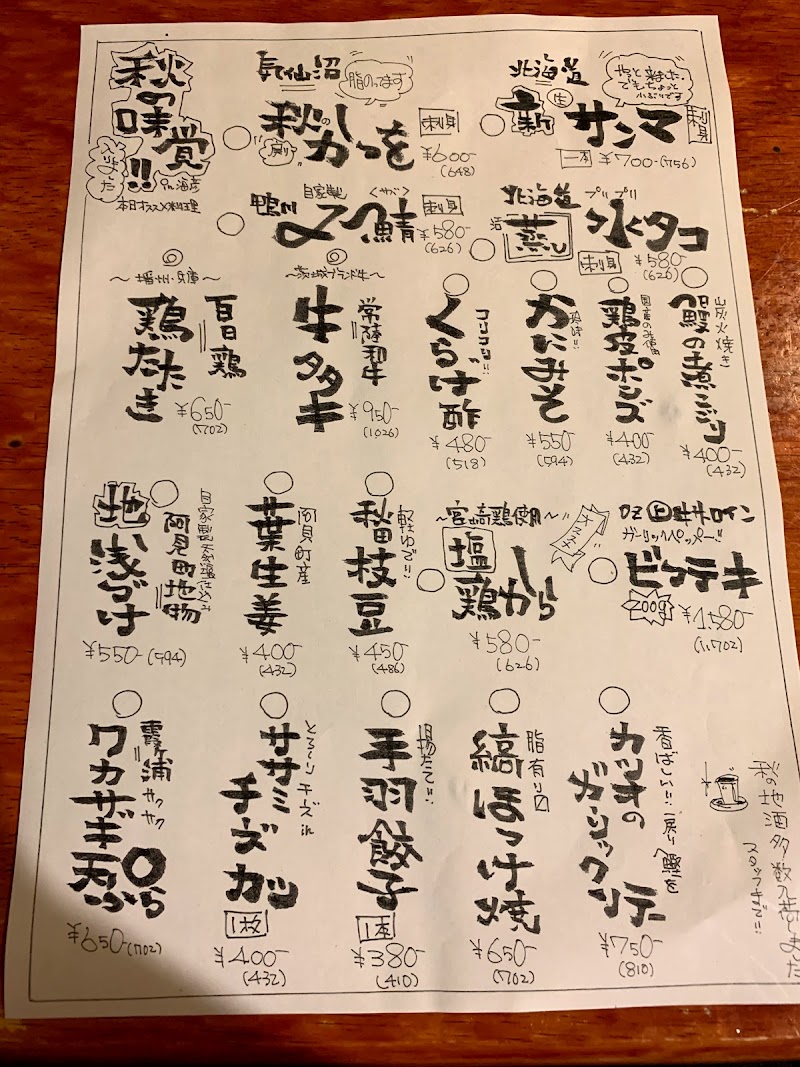 秋の味覚!!
入りました
in 海彦
本日オススメ料理
気仙沼
脂のってます
秋の
戻り
かつを
刺身
¥600-
(648)
北海道
やっと来ました。
でもちょっと
小ぶりです
新
生
サンマ
刺身
一本 ¥700-(756)
鴨川
自家製
〆鯖
刺身
¥580-
(626)
北海道
プリプリ
活
蒸し
水タコ
刺身
¥580-
(626)
～播州・兵庫～
百日鶏
鶏たたき
¥650-
(702)
～茨城ブランド牛～
常陸和牛
牛タタキ
¥950-
(1026)
コリコリ!!
くらげ酢
¥480-
(518)
かにみそ
¥550-
(594)
国産のみ使用
鶏皮ポンズ
¥400-
(432)
炭火焼き
鰻の煮こごり
¥400-
(432)
自家製天然塩仕込み
阿見町地物
地浅づけ
¥550-(594)
阿見町産
葉生姜
¥400-
(432)
軽ゆで!!
秘伝枝豆
¥450-
(486)
～宮崎鶏使用～
塩
鶏から
¥580-
(626)
オススメ
OZ 上 牛サーロイン
ガーリックペッパー!!
ビフテキ
200g
¥1,580-
(1,702)
霞ヶ浦
サクサク
ワカサギ天ぷら
¥650-(702)
とろ〜りチーズin
ササミ
チーズカツ
1枚
¥400-
(432)
揚たて!!
手羽餃子
1本
¥380-
(410)
脂有り
縞ほっけ焼
¥650-
(702)
香ばしい!!戻り鰹を
カツオの
ガーリックソテー
¥750-
(810)
秋の地酒多数入荷しました
スタッフまで!!